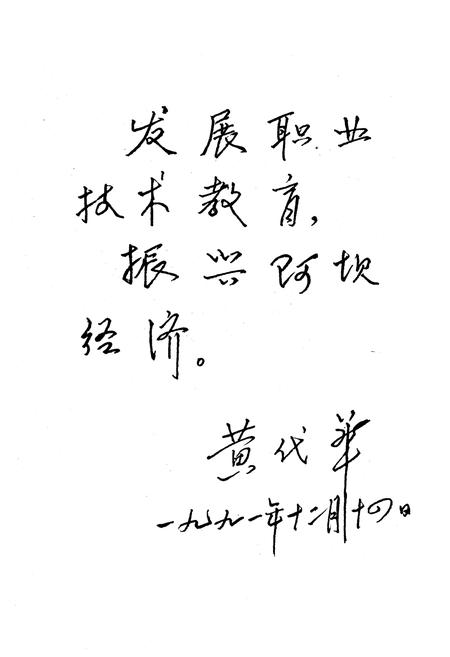 发展职业
技术教育，
振兴阿坝
经济。
黄代华
一九九一年十二月十四日